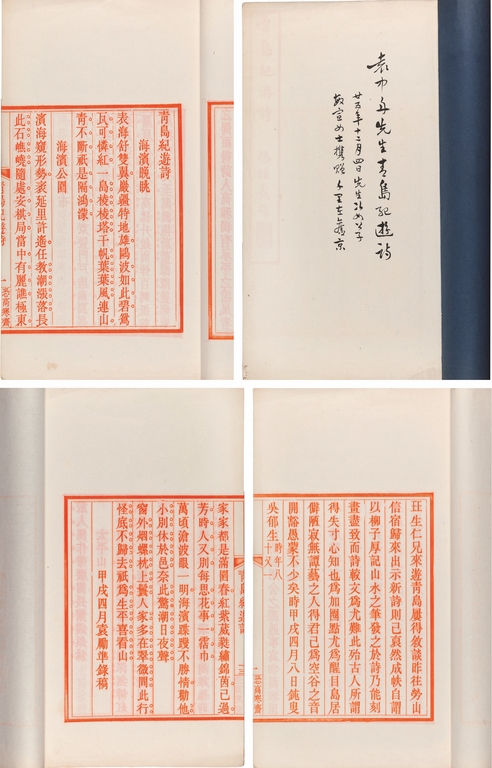 靑島紀遊詩
海濱晚眺
表海舒雙翼巖疆特地雄鷗波如此碧鴛
瓦可憐紅一島棱棱塔千帆葉葉風連山
靑不斷祇是隔鴻濛
海濱公園
濱海窺形勢袤延里許遙任教潮漲落長
此石嶕嶢隨處安棋局當中有麗譙極東
靑島紀遊詩 一 恐高寒齋
袁中舟先生青島紀遊詩
廿五年十二月四日先生
女士携贈
珏生仁兄來遊靑島屢得敘談昨往勞山
信宿歸來出示新詩則已裒然成帙自謂
以柳子厚記山水之筆發之於詩乃能刻
畫盡致而詩較文爲尤難此殆古人所謂
得失寸心知也爲加圈點尤爲醒目島居
僻陋寂無譚藝之人得君已爲空谷之音
開豁愚蒙不少矣時甲戌四月八日鈍叟
吳郁生時年八十又一
一 恐高寒齋
家家都是滿園春紅紫葳蕤繡錦茵已過
芳時人又別每思花事一霑巾
萬頃滄波眼一明海濱蹀躞不勝情勸他
小別休於邑奈此驚潮日夜聲
窗外烟螺枕上鬟人家多在翠微間此行
怪底不歸去祇爲生平喜看山
甲戌四月袁勵準錄稿